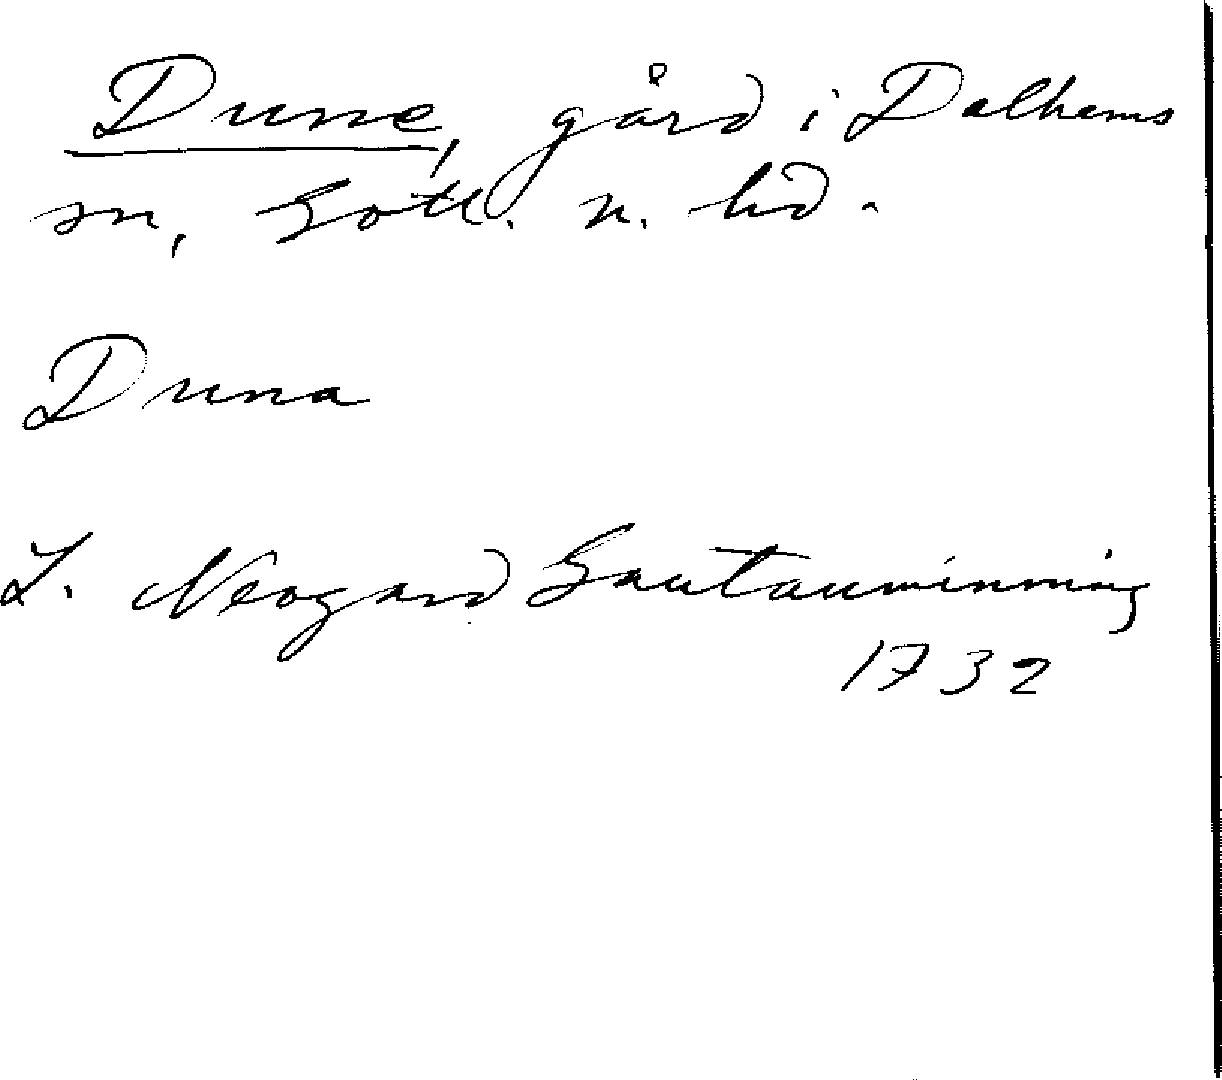 Dune, gård i Dalhems
sn, Gotl. n. hd.
Duna
L. Neogard Gautauminning
1732